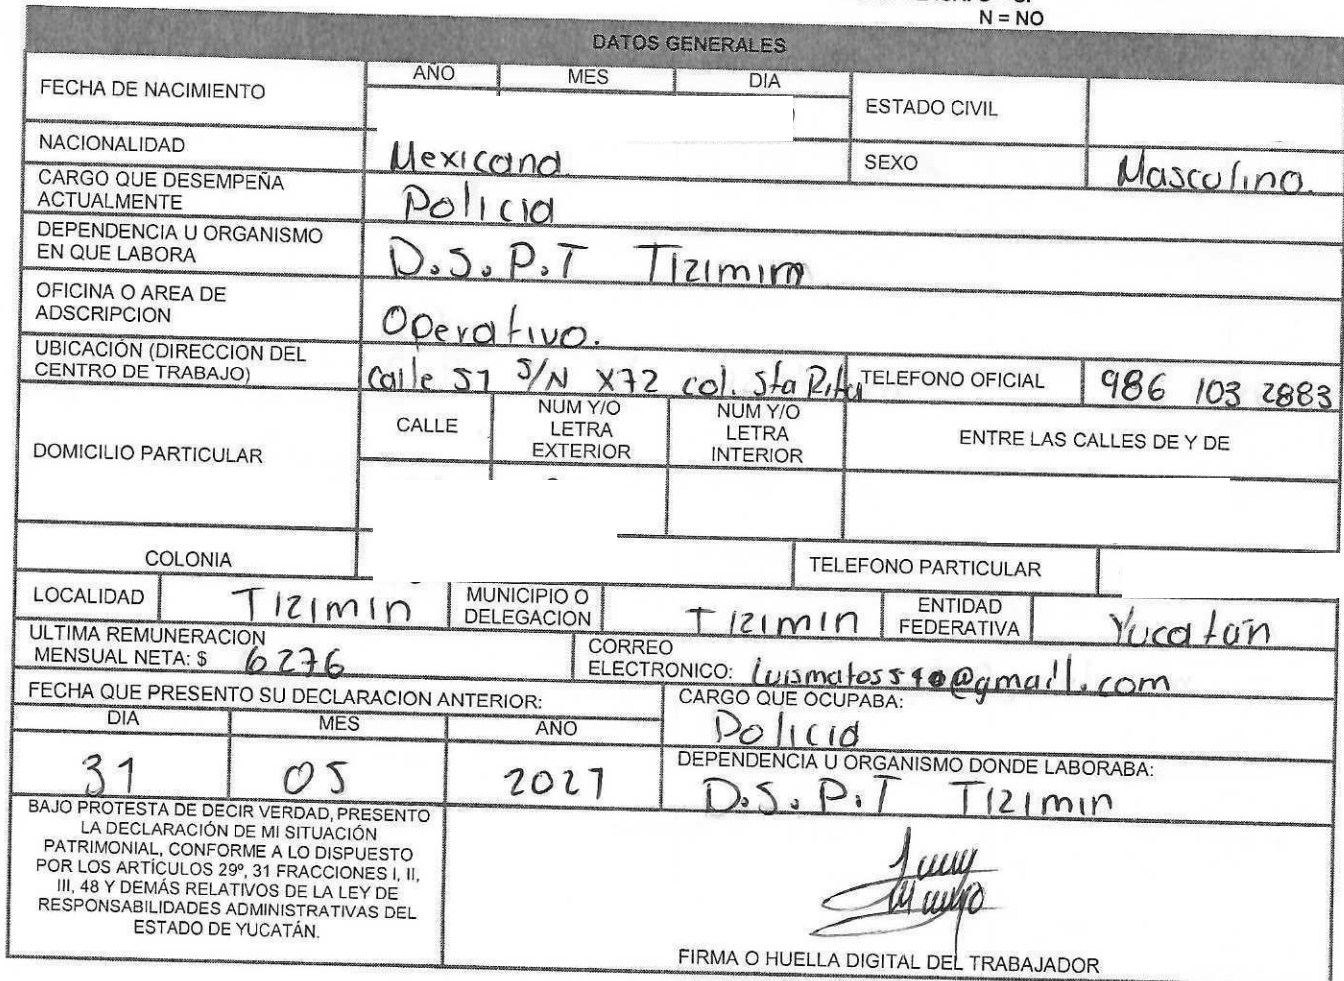 N = NO
DATOS GENERALES
FECHA DE NACIMIENTO
AÑO MES DIA
ESTADO CIVIL
NACIONALIDAD Mexicana SEXO Masculino.
CARGO QUE DESEMPEÑA
ACTUALMENTE Policia
DEPENDENCIA U ORGANISMO
EN QUE LABORA D.S.P.T Tizimin
OFICINA O AREA DE
ADSCRIPCION Operativo.
UBICACIÓN (DIRECCION DEL
CENTRO DE TRABAJO) Calle 51 S/N X72 col. Sta Rita TELEFONO OFICIAL 986 103 2883
DOMICILIO PARTICULAR
CALLE
NUM Y/O
LETRA
EXTERIOR
NUM Y/O
LETRA
INTERIOR
ENTRE LAS CALLES DE Y DE
COLONIA TELEFONO PARTICULAR
LOCALIDAD Tizimin
MUNICIPIO O
DELEGACION Tizimin
ENTIDAD
FEDERATIVA Yucatán
ULTIMA REMUNERACION
MENSUAL NETA: $ 6276
CORREO
ELECTRONICO: @gmail.com
FECHA QUE PRESENTO SU DECLARACION ANTERIOR:
DIA MES AÑO
31 05 2021
CARGO QUE OCUPABA:
Policia
DEPENDENCIA U ORGANISMO DONDE LABORABA:
D.S.P.T Tizimin
BAJO PROTESTA DE DECIR VERDAD, PRESENTO
LA DECLARACIÓN DE MI SITUACIÓN
PATRIMONIAL, CONFORME A LO DISPUESTO
POR LOS ARTÍCULOS 29º, 31 FRACCIONES I, II,
III, 48 Y DEMÁS RELATIVOS DE LA LEY DE
RESPONSABILIDADES ADMINISTRATIVAS DEL
ESTADO DE YUCATÁN.
FIRMA O HUELLA DIGITAL DEL TRABAJADOR